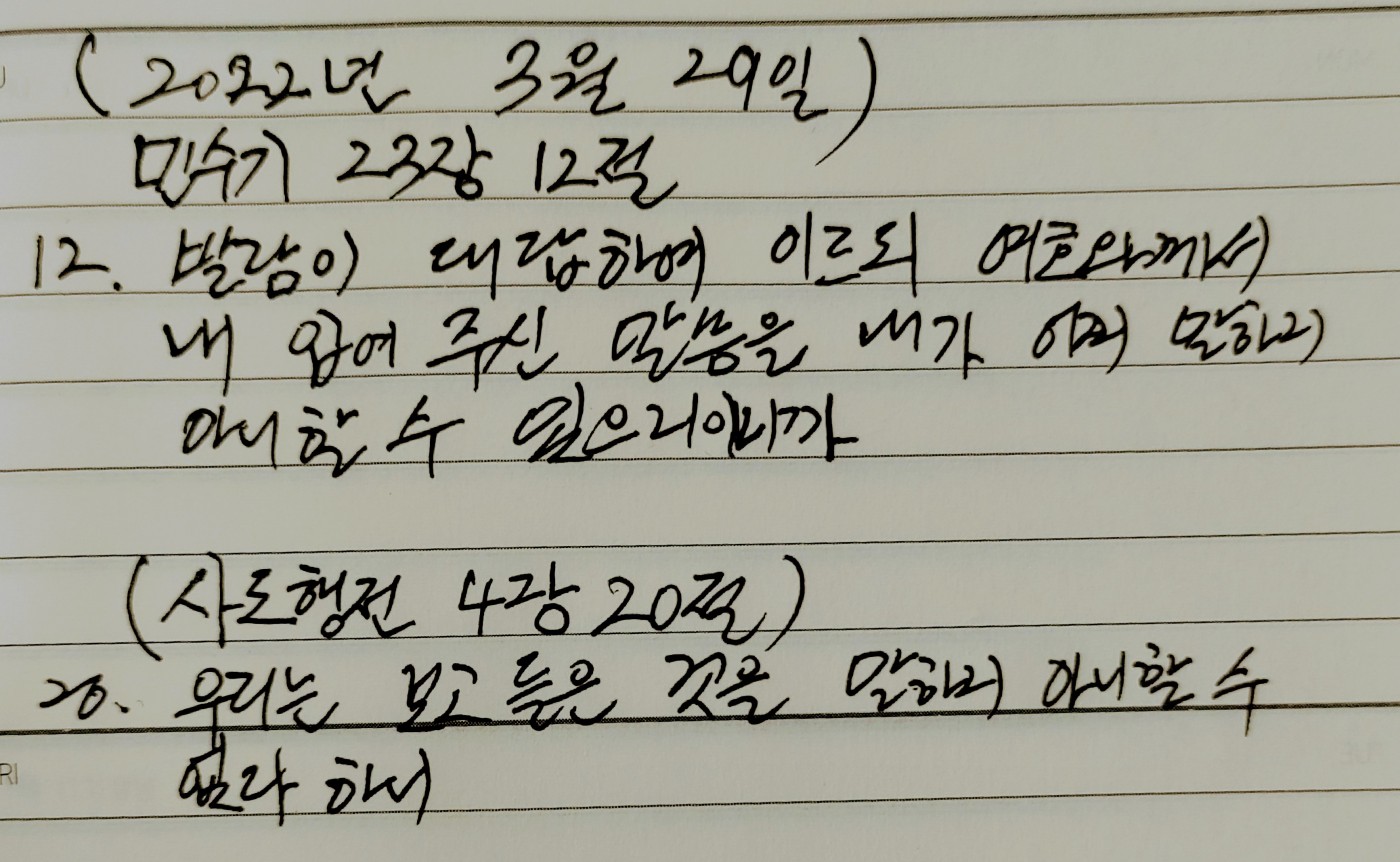 (2022년 3월 29일)
민수기 23장 12절
12. 발람이 대답하여 이르되 여호와께서
내 입에 주신 말씀을 내가 어찌 말하지
아니할 수 있으리이까
(사도행전 4장 20절)
20. 우리는 보고 들은 것을 말하지 아니할 수
없다 하니
RI